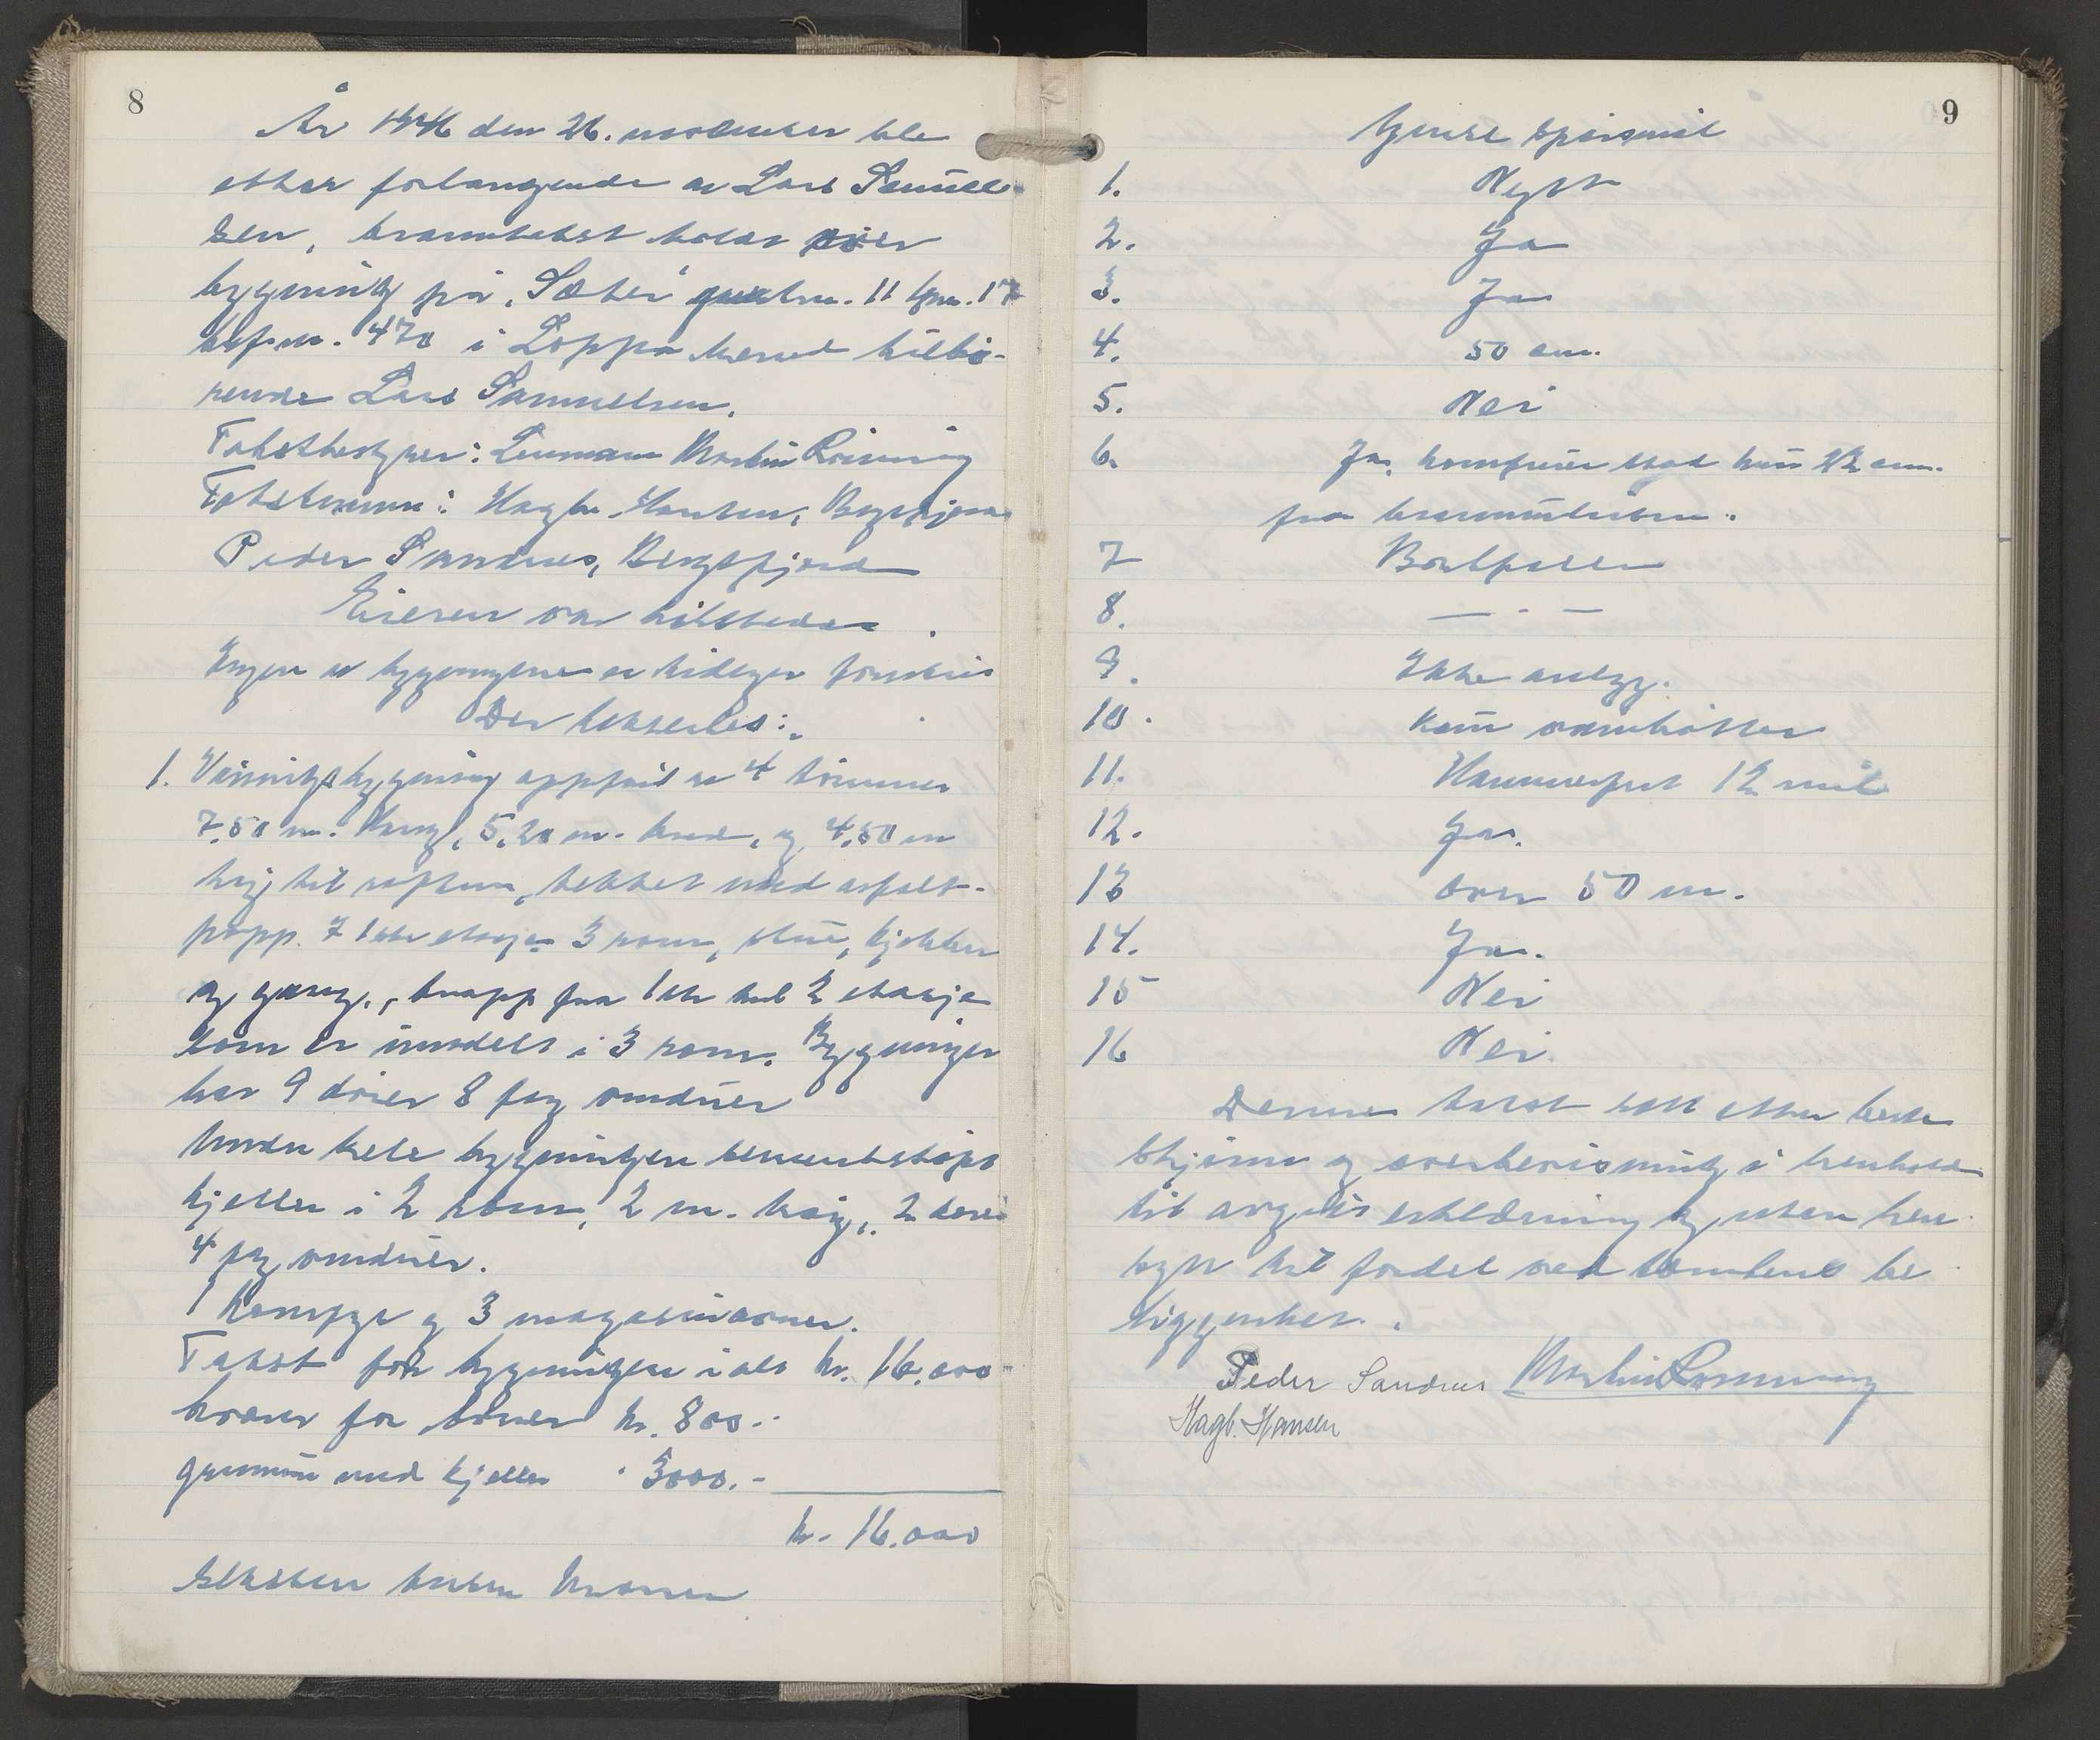 8
År 1946 den 26. november ble
etter forlangende av Lars Samuel-
sen, branntakst holdt over
bygning på "Sæter" gnr. 11 bnr. 17
skfnr. 470 i Loppa herred tilhø-
rende Lars Samuelsen.
Takstbestyrer: Lensmann Martin Rønning
Takstmenn: Hagb. Hansen, Bergsfjord
Peder Sandnes, Bergsfjord
Eieren var tilstede.
Ingen av bygningene er tidliger forsikret
Der takseres:
1. Våningsbygning oppført av 4" tømmer
7.50 m. lang, 5,20 m. bred, og 4.50 m
høj til raften, tekket med asfalt-
papp. I 1ste etasje 3 rom, stue, kjøkken
og gang., trapp fra 1ste til 2 etasje
som er inndelt i 3 rom. Bygningen
har 9 dører 8 fag vinduer
Under hele bygningen sementstøpt
kjeller i 2 rom, 2 m. høy, 2 dører
4 fag vinduer.
1 komfyr og 3 magasinovner.
Takst for bygningen i alt kr. 16.000
herav for ovner kr. 800.-
grunnmur med kjeller " 3000.-
kr. 16.000
9
Generelle spørsmål
1. Nytt
2. Ja
3. Ja
4. 50 cm.
5. Nei
6. Ja, komfuren stod kun 22 cm.
fra brannmuren.
7 Bordpanel
8. — " —
9. Ikke anlegg.
10. Kun vannbøtter
11. Hammerfest 12 mil
12. Ja.
13 over 50 m.
14. Ja.
15 Nei
16 Nei.
Denne takst satt etter beste
skjønn og overbevisning i henhold
til avgitt erklæring og uten hen-
syn til fordel ved tomtens be-
liggenhet.
Peder Sandnes Martin Rønning
Hagb. Hansen